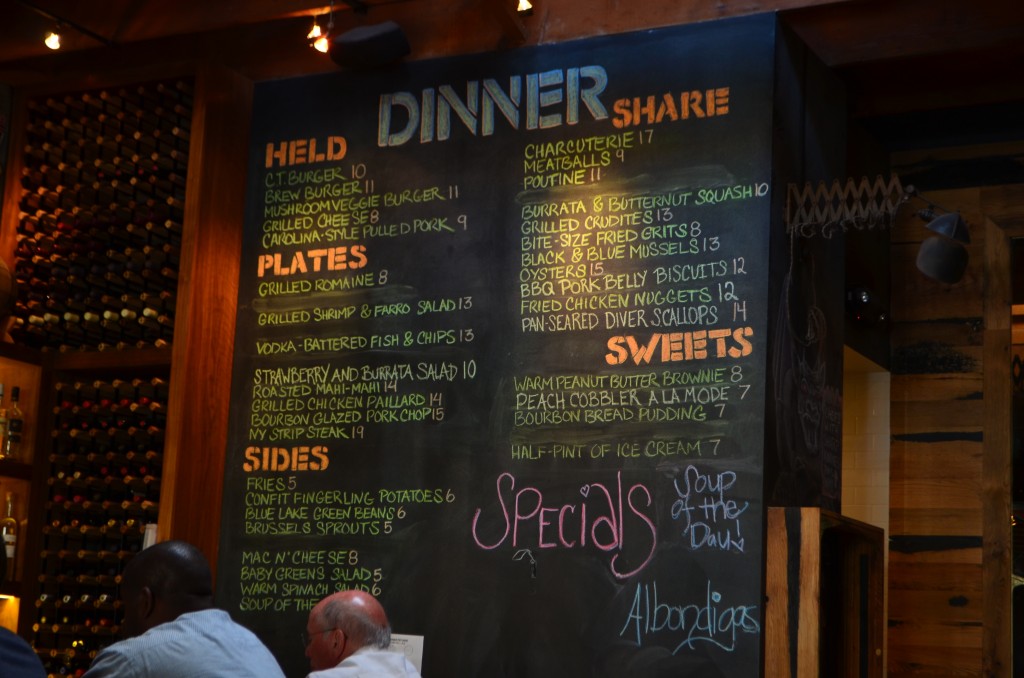 DINNER
HELD
C.T. BURGER 10
BREW BURGER 11
MUSHROOM VEGGIE BURGER 11
GRILLED CHEESE 8
CAROLINA-STYLE PULLED PORK 9
PLATES
GRILLED ROMAINE 8
GRILLED SHRIMP & FARRO SALAD 13
VODKA-BATTERED FISH & CHIPS 13
STRAWBERRY AND BURRATA SALAD 10
ROASTED MAHI-MAHI 14
GRILLED CHICKEN PAILLARD 14
BOURBON GLAZED PORK CHOP 15
NY STRIP STEAK 19
SIDES
FRIES 5
CONFIT FINGERLING POTATOES 6
BLUE LAKE GREEN BEANS 6
BRUSSELS SPROUTS 5
MAC N' CHEESE 8
BABY GREENS SALAD 5
WARM SPINACH SALAD 6
SOUP OF THE
SHARE
CHARCUTERIE 17
MEATBALLS 9
POUTINE 11
BURRATA & BUTTERNUT SQUASH 10
GRILLED CRUDITES 13
BITE-SIZE FRIED GRITS 8
BLACK & BLUE MUSSELS 13
OYSTERS 15
BBQ PORK BELLY BISCUITS 12
FRIED CHICKEN NUGGETS 12
PAN-SEARED DIVER SCALLOPS 14
SWEETS
WARM PEANUT BUTTER BROWNIE 8
PEACH COBBLER A LA MODE 7
BOURBON BREAD PUDDING 7
HALF-PINT OF ICE CREAM 7
SPECIAlS
Soup
of the
Day!
Albondigas